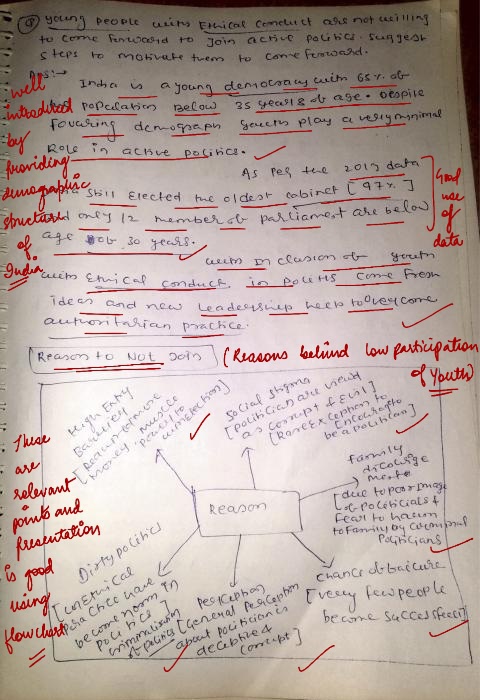 Q young people with Ethical conduct are not willing
to come forward to join active politics. suggest
steps to motivate them to come forward.
Ans:→
India is a young democracy with 65% of
population Below 35 years of age. Despite
favouring demograph youth play a very minimal
Role in active politics.
As per the 2019 data
India still Elected the oldest cabinet [47%]
and only 12 member of parliament are below
age of 30 years.
with inclusion of youth
with Ethical conduct in politis come fresh
ideas and new leadership help to overcome
authoritarian practice.
well
introduced
by
providing
demographic
structured
of
India
Good
use
of
data
Reason to Not Join
(Reasons behind low participation
of Youth)
These
are
relevant
points and
presentation
is good
using
flowchart
Reason
High Entry
Barriers
[Requirement more
money, muscle
power to
win election]
Social stigma
[politician are view
as corrupt & Evil]
[Rare Exception to
Encourage to
be a politician]
Family
discourage
ment
[due to poor image
of politicials &
fear to harm
to family by
politicians
chance of failure
[very few people
become successfeel]
Perception
[General Perception
about politician is
deceptive &
corrupt]
Dirty politics
[unEthical
practice have
become norm in
politics]
criminalisation
of politics